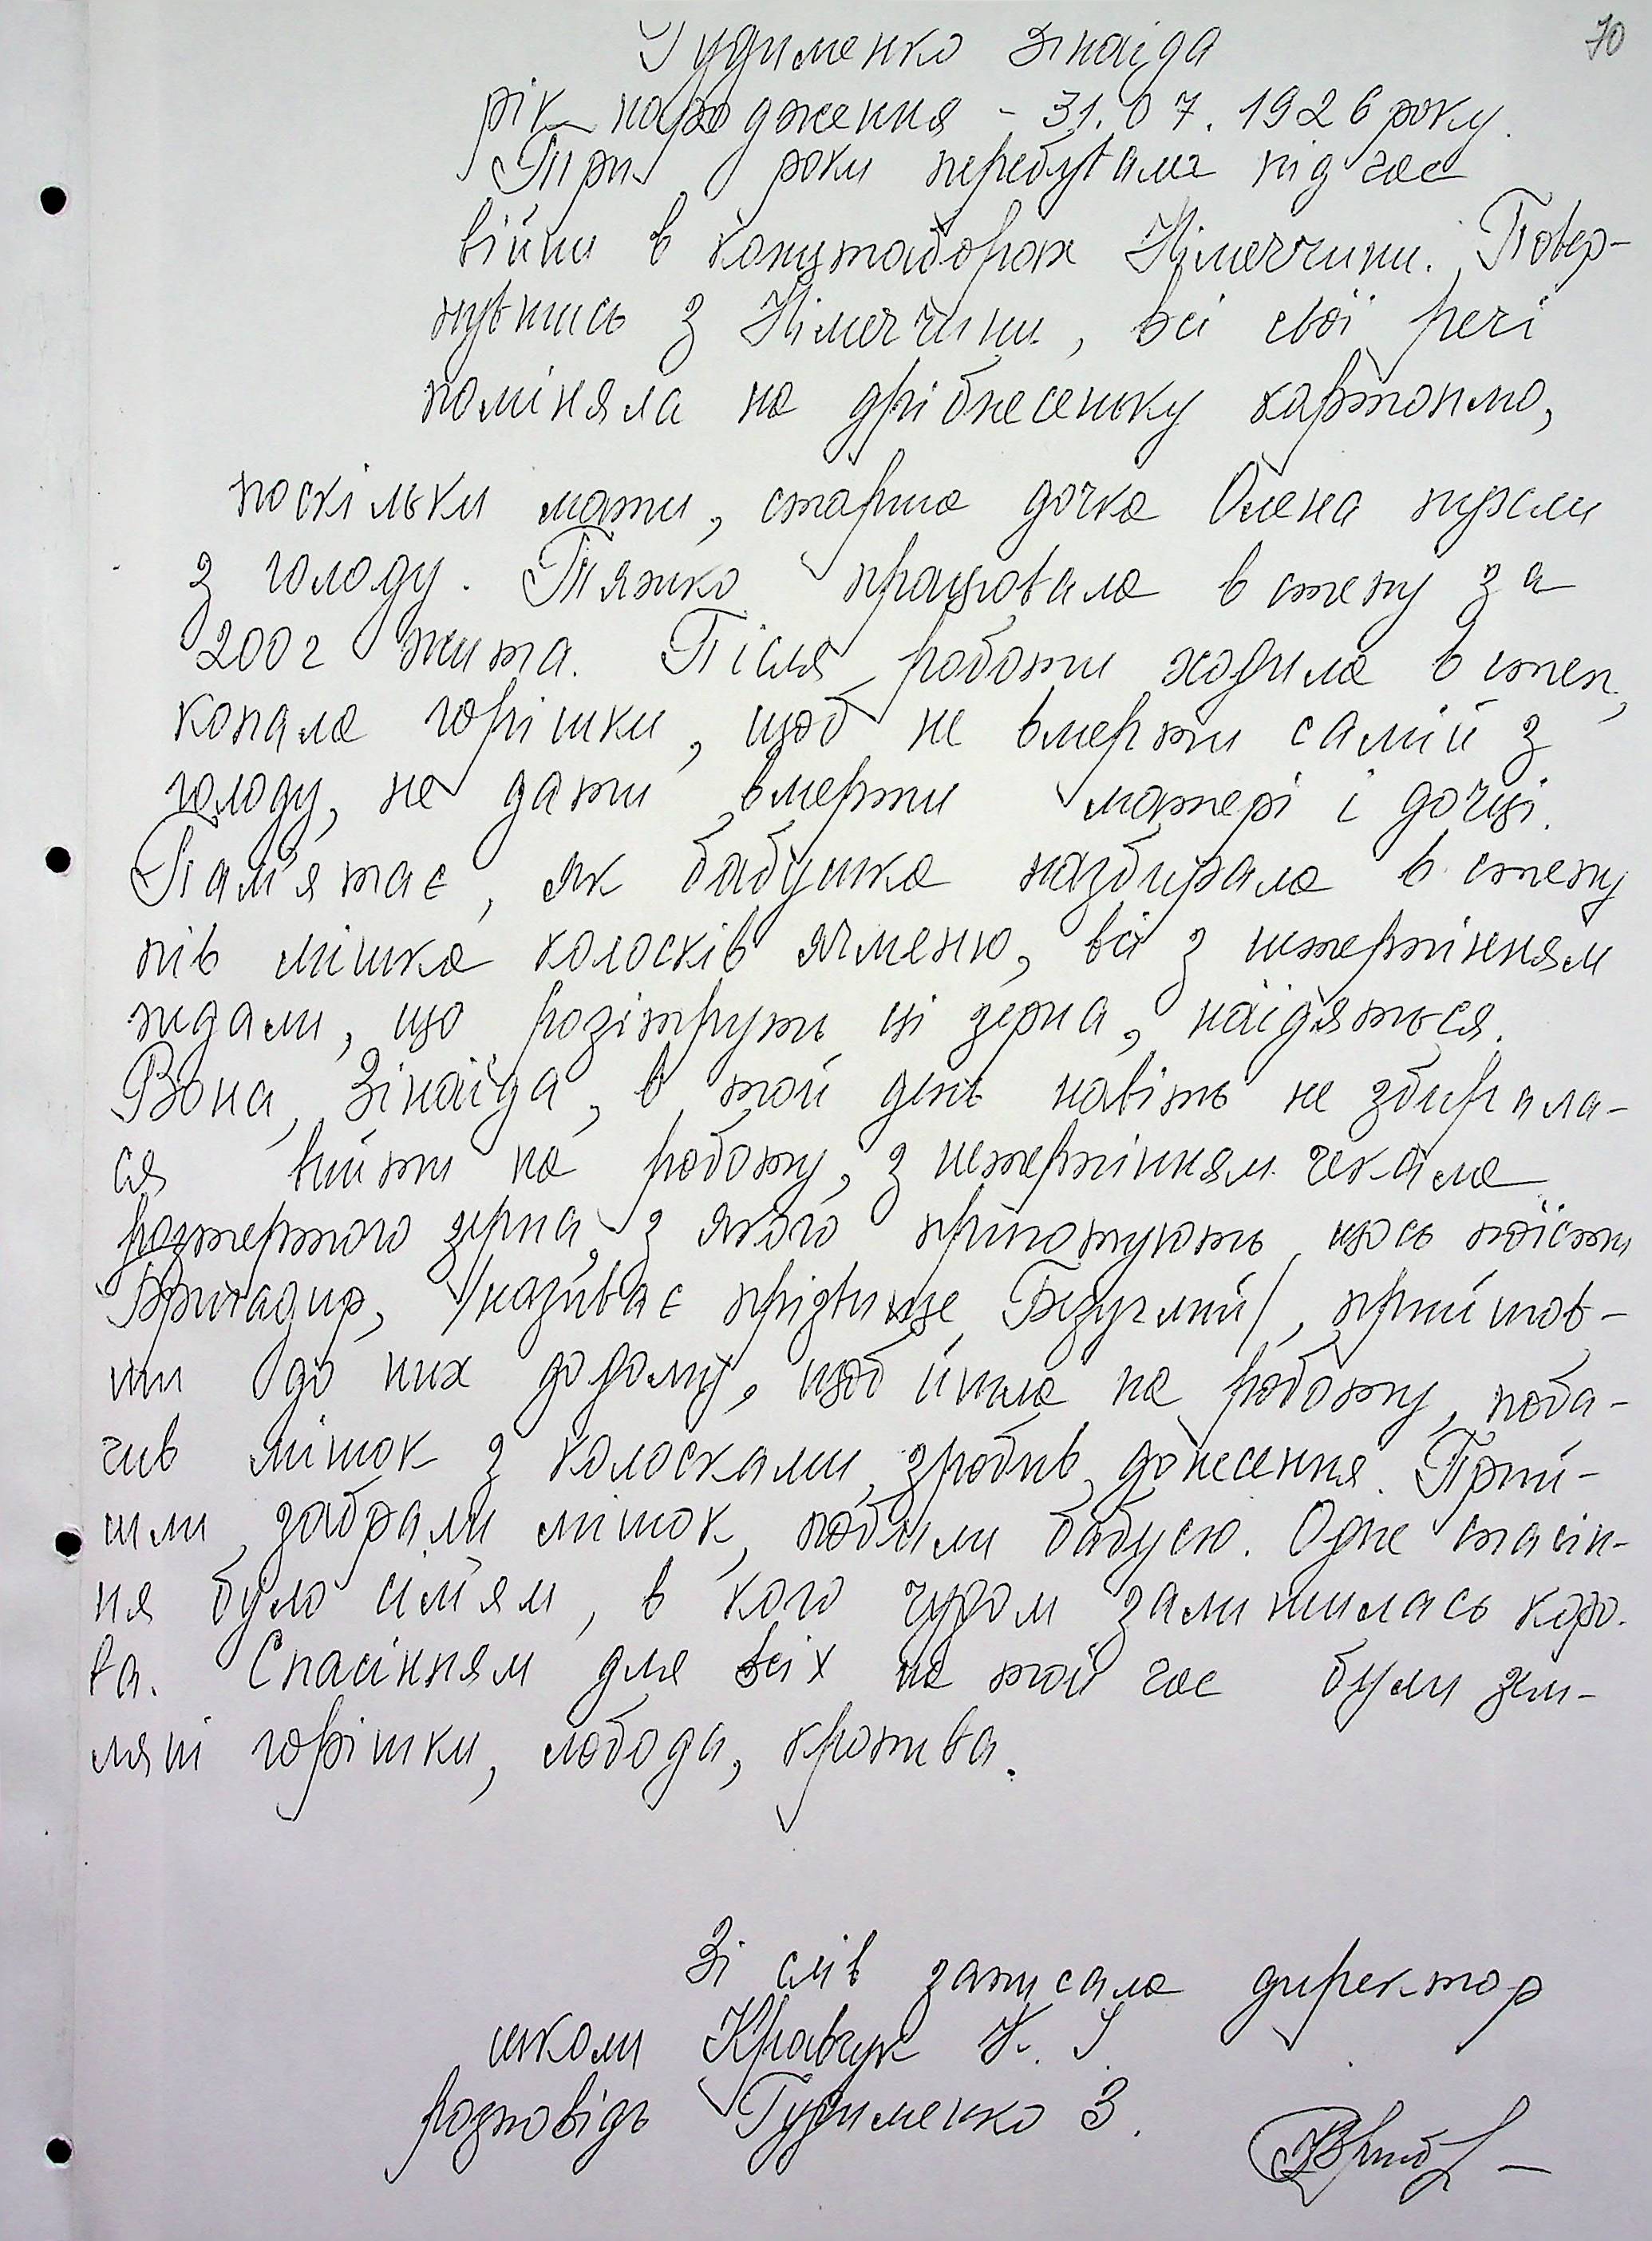 70
Гудименко Зінаїда
рік народження - 31.07.1926 року.
Три роки перебувала під час
війни в концтаборах Німеччини. Повер-
нувшись з Німеччини, всі свої речі
поміняла на дрібнесеньку картоплю,
поскільки мати, старша дочка Олена пухли
з голоду. Тяжко працювала в степу за
200 г жита. Після роботи ходила в степ,
копала горішки, щоб не вмерти самій з
голоду, не дати вмерти матері і дочці.
Пам'ятає, як бабушка назбирала в степу
пів мішка колосків ячменю, всі з нетерпінням
ждали, що розітруть ці зерна, наїдяться.
Вона, Зінаїда, в той день навіть не збирала-
ся вийти на роботу, з нетерпінням чекала
розтертого зерна, з якого приготують щось поїсти
Бригадир, /називає прізвище Безуглий/, прийшов-
ши до них додому, щоб йшла на роботу, поба-
чив мішок з колосками, зробив донесення. Прий-
шли, забрали мішок, побили бабусю. Одне спасін-
ня було сім'ям, в кого чудом залишилась коро-
ва. Спасінням для всіх на той час були зем-
ляні горішки, лобода, кропива.
Зі слів записала директор
школи Кравчук
розповідь Гудименко З.